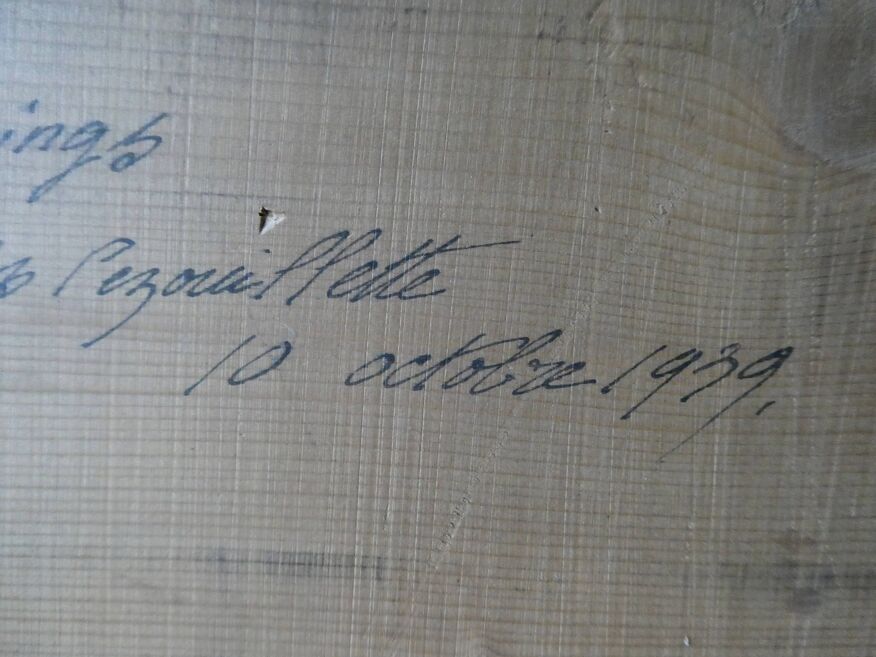 ings
Pezouillette
10 octobre 1939.